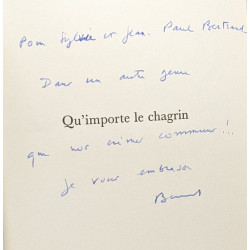 Pour Sylvie et Jean. Paul Bertrand
Dans un autre genre
Qu'importe le chagrin
que nos crimes communs !!.
je vous embrasse